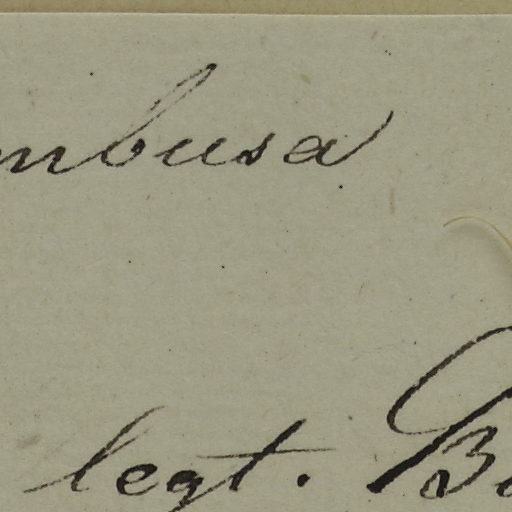 mbusa
legt. B